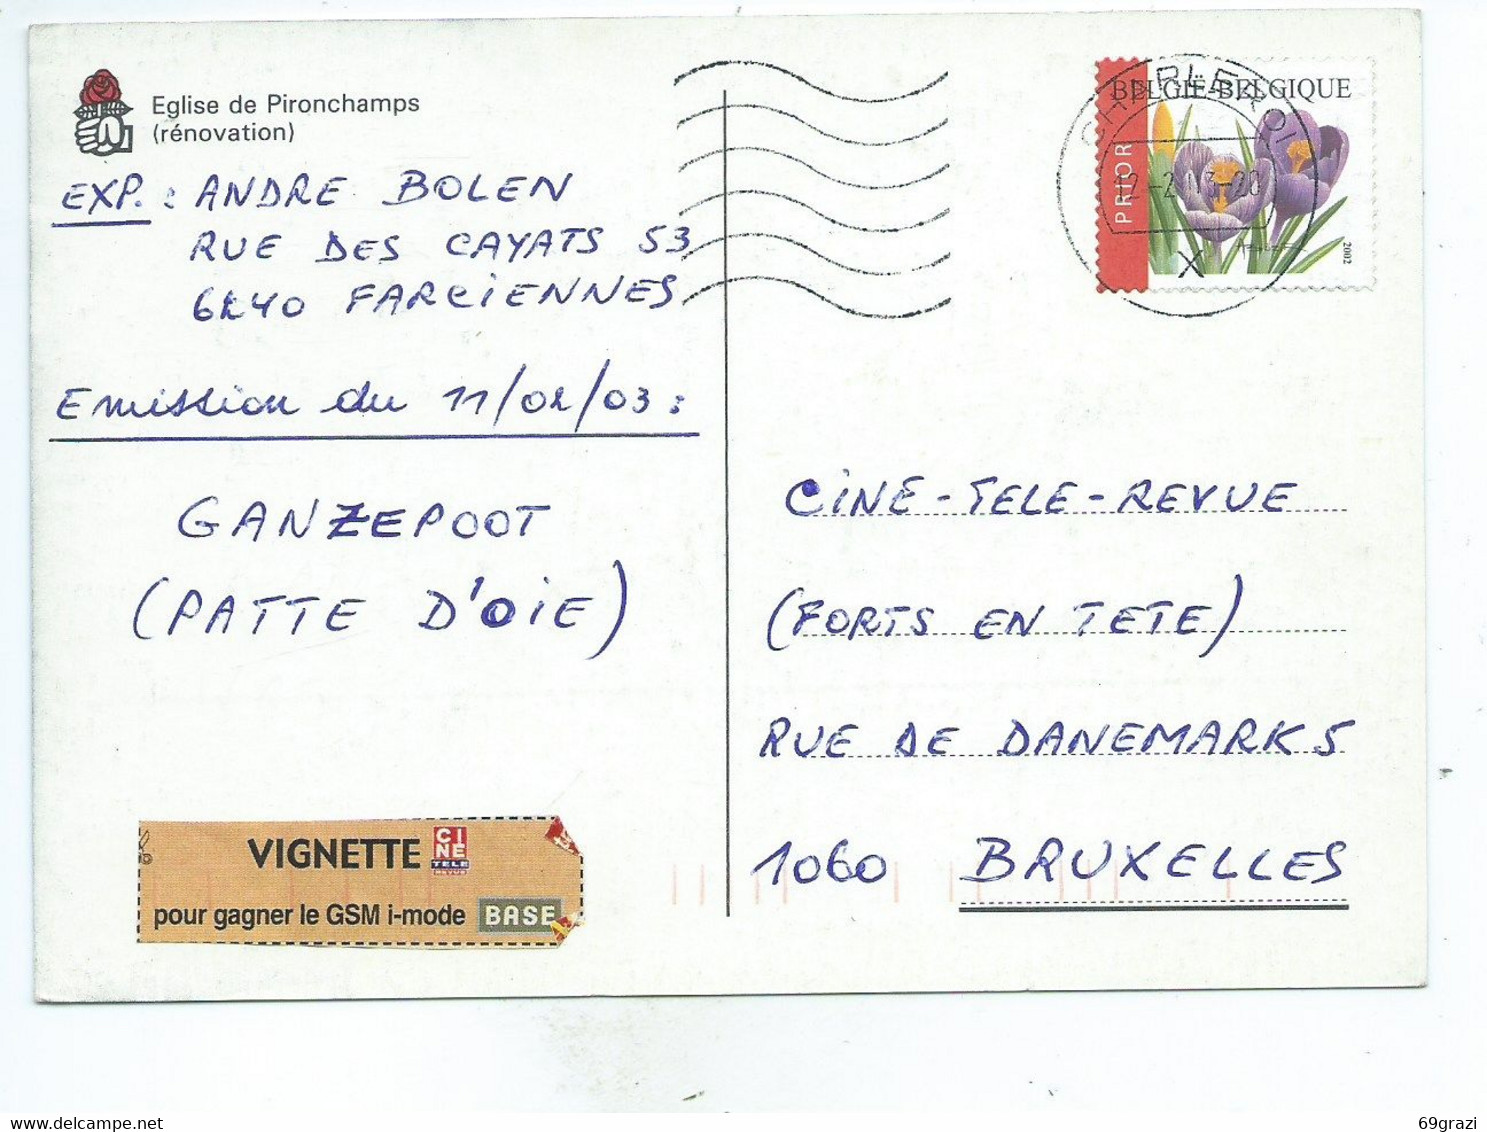 Eglise de Pironchamps
(rénovation)
EXP. : ANDRE BOLEN
RUE DES CAYATS 53
6240 FARCIENNES
Emission du 11/02/03 :
GANZEPOOT
(PATTE D'OIE)
VIGNETTE CINE TELE REVUE
pour gagner le GSM i-mode BASE
BELGIË-BELGIQUE
PRIOR
CHARLEROI
X
2002
CINE-TELE-REVUE
(FORTS EN TETE)
RUE DE DANEMARK 5
1060 BRUXELLES
69grazi